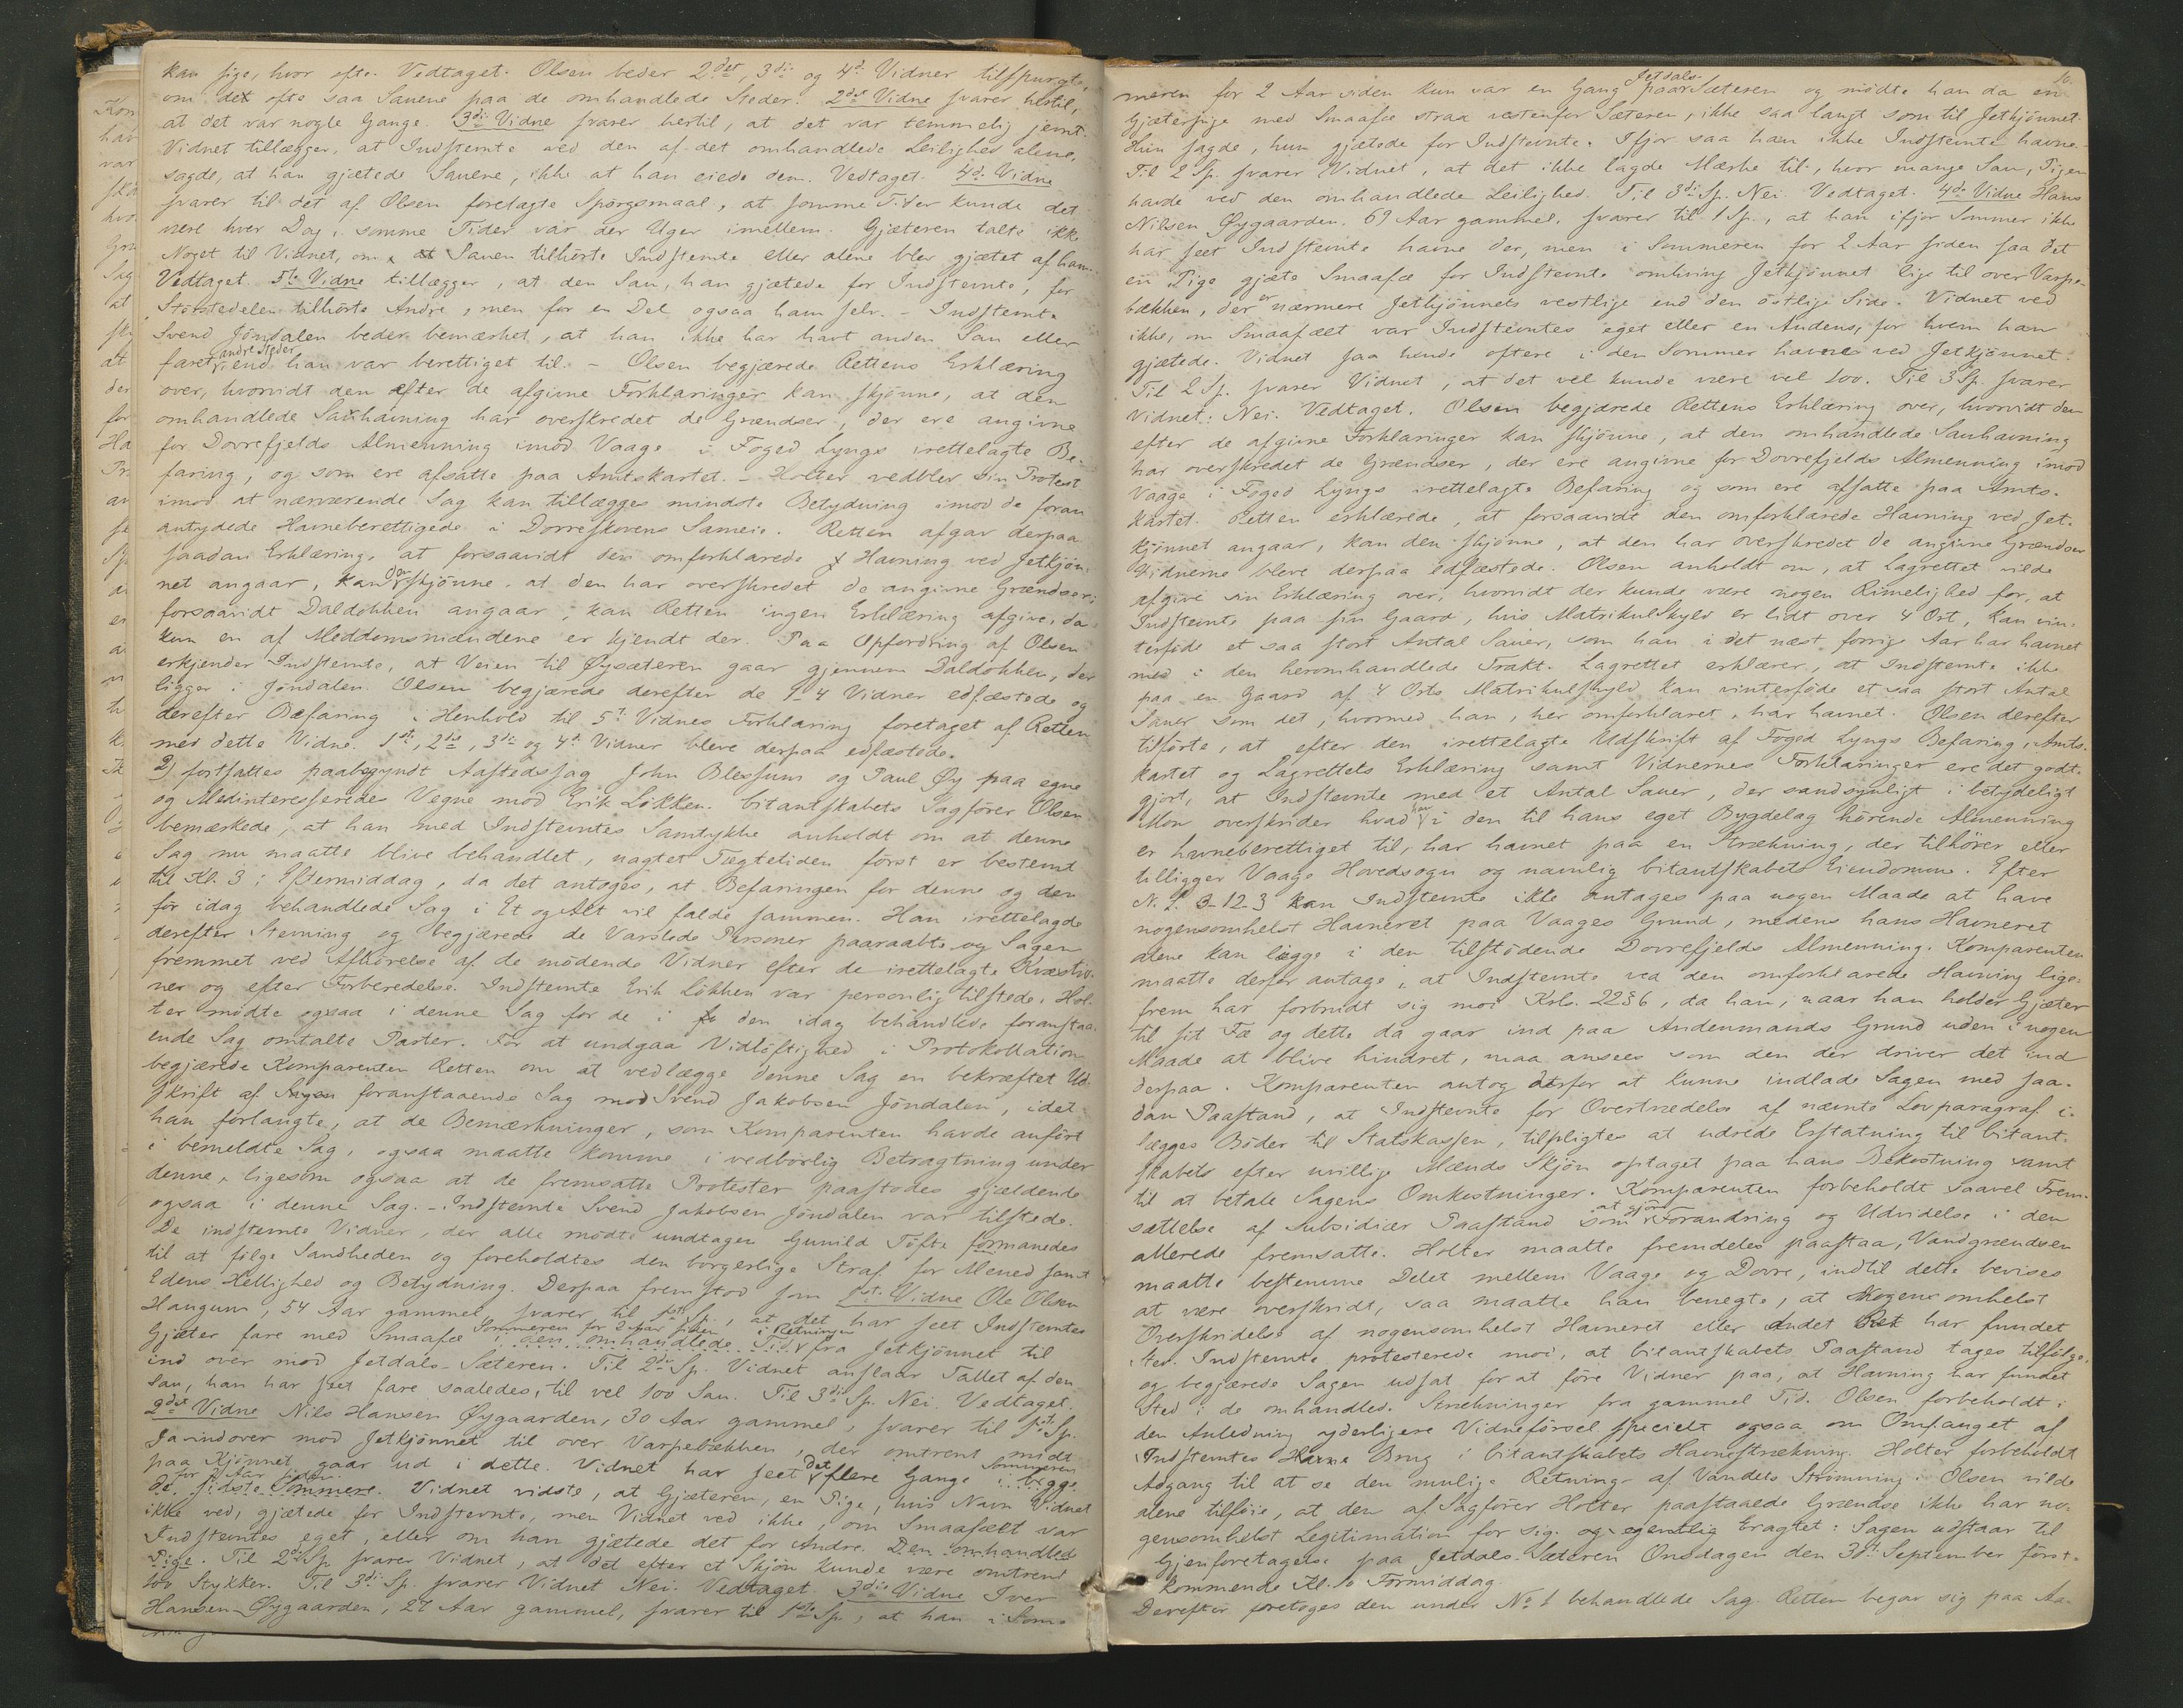 kan sige, hvor ofte. Vedtaget. Olsen beder 2det, 3di og 4d Vidner tilspurgte,
om det ofte saa Sauene paa de omhandlede Steder. 2det Vidne svarer hertil,
at det var nogle Gange. 3di Vidne svarer hertil, at det var temmelig jevnt.
Vidnet tillægger, at Indstevnte ved den af det omhandlede Leilighed alene,
sagde, at han gjætede Sauene, ikke at han eiede dem. Vedtaget. 4de Vidne
svarer til det af Olsen forelagte Spørgsmaal, at somme Tider kunde det
være hver Dag, somme Tider var der Uger imellem. Gjæteren talte ikke
Noget til Vidnet, om at Sauen tilhörte Indstevnte eller alene blev gjætet af ham.
Vedtaget. 5te Vidne tillægger, at den Sau, han gjætede for Indstevnte, for
Störstedelen tilhörte Andre, men for en Del ogsaa ham selv. - Indstevnte
Svend Jöndalen beder bemærket, at han ikke har havt anden Sau eller
faret andre Steder end han var berettiget til. - Olsen begjærede Rettens Erklæring
over, hvorvidt den efter de afgivne Forklaringer kan skjönne, at den
omhandlede Sauhavning har overskredet de Grændser, der ere angivne
for Dovrefjelds Almenning imod Vaage i Foged Lyngs irettelagte Be-
faring, og som ere afsatte paa Amtskartet. - Holter vedblev sin Protest
imod at nærværende Sag kan tillægges mindste Betydning imod de foran
antydede Havneberettigede i Dovreskovens Sameie. Retten afgav derpaa
saadan Erklæring, at forsaavidt den omforklarede Havning ved Jetkjön-
net angaar, kan den skjönne, at den har overskredet de angivne Grændser;
forsaavidt Daldokken angaar, kan Retten ingen Erklæring afgive, da
kun en af Meddomsmændene er kjendt der. Paa Opfordring af Olsen
erkjender Indstevnte, at Veien til Øysæteren gaar gjennem Daldokken, der
ligger i Jöndalen. Olsen begjærede derefter de 1-4 Vidner edfæstede og
derefter Befaring i Henhold til 5te Vidnes Forklaring foretaget af Retten
med dette Vidne. 1ste, 2det, 3di og 4de Vidner bleve derpaa edfæstede.
2) fortsattes paabegyndt Aastedssag John Blessum og Paul Øy paa egne
og Medinteresseredes Vegne mod Erik Løkken. Citantskabets Sagförer Olsen
bemærkede, at han med Indstevntes Samtykke anholdt om at denne
Sag nu maatte blive behandlet, uagtet Tægtetiden först er bestemt
til Kl. 3 i Eftermiddag, da det antoges, at Befaringen for denne og den
för idag behandlede Sag i Et og Alt vil falde sammen. Han irettelagde
derefter Stevning og begjærede de Varslede Personer paaraabte og Sagen
fremmet ved Afhörelse af de mödende Vidner efter de irettelagte Kvæstio-
ner og efter Forberedelse. Indstevnte Erik Lökken var personlig tilstede. Hol-
ter mödte ogsaa i denne Sag for de i den idag behandlede foranstaa-
ende Sag omtalte Parter. For at undgaa Vidlöftighed i Protokollation
begjærede Komparenten Retten om at vedlægge denne Sag en bekræftet Ud-
skrift af foranstaaende Sag mod Svend Jakobsen Jöndalen, idet
han forlangte, at de Bemærkninger, som Komparenten havde anfört
i bemeldte Sag, ogsaa maatte komme i vedbörlig Betragtning under
denne, ligesom ogsaa at de fremsatte Protester paastodes gjældende
ogsaa i denne Sag. - Indstevnte Svend Jakobsen Jöndalen var tilstede.
De indstevnte Vidner, der alle mödte undtagen Gunild Töfte formanedes
til at fölge Sandheden og foreholdtes den borgerlige Straf for Mened samt
Edens Hellighed og Betydning. Derpaa fremstod som 1ste Vidne Ole Olsen
Haugum, 54 Aar gammel, svarer til 1ste Sp., at det har seet Indstevntes
Gjæter fare med Smaafæ Sommeren for 2 Aar siden i den omhandlede Tid i Retningen fra Jetkjönnet til
ind over mod Jetdals-Sæteren. Til 2det Sp. Vidnet anslaar Tallet af den
Sau, han har seet fare saaledes, til vel 100 Sau. Til 3di Sp. Nei. Vedtaget.
2det Vidne Nils Hansen Øygaarden, 30 Aar gammel, svarer til 1ste Sp.
Ja indover mod Jetkjönnet til over Varpebækken, der omtrent midt
paa Kjönnet gaar ud i dette. Vidnet har seet det flere Gange Sommeren i begge
for 2 Aar siden. de sidste Sommere. Vidnet vidste, at Gjæteren, en Pige, hvis Navn Vidnet
ikke ved, gjætede for Indstevnte, men Vidnet ved ikke, om Smaafæet var
Indstevntes eget, eller om han gjætede det for Andre. Den omhandlede
Pige. Til 2det Sp. svarer Vidnet, at det efter et Skjön kunde være omtrent
100 Stykker. Til 3di Sp. svarer Vidnet Nei. Vedtaget. 3die Vidne Iver
Hansen Øygaarden, 27 Aar gammel, svarer til 1ste Sp., at han i Som-
16.
meren for 2 Aar siden kun var en Gang paa Jetdals-Sæteren og mödte han da en
Gjæterpige med Smaafæ strax vestenfor Sæteren, ikke saa langt som til Jetkjönnet.
Hun sagde, hun gjætede for Indstevnte. Ifjor saa han ikke Indstevnte havne.
Til 2 Sp. svarer Vidnet, at det ikke lagde Mærke til, hvor mange Sau, Pigen
havde ved den omhandlede Leilighed. Til 3di Sp. Nei. Vedtaget. 4de Vidne Hans
Nilsen Øygaarden, 69 Aar gammel, svarer til 1 Sp., at han ifjor Sommer ikke
har seet Indstevnte havne der, men i Sommeren for 2 Aar siden saa det
en Pige gjæte Smaafæ for Indstevnte omkring Jetkjönnet lige til over Varpe-
bækken, der er nærmere Jetkjönnets vestlige end den östlige Side. Vidnet ved
ikke, om Smaafæet var Indstevntes eget eller en Andens, for hvem han
gjætede. Vidnet saa hende oftere i den Sommer havne ved Jetkjönnet.
Til 2 Sp. svarer Vidnet, at det vel kunde være vel 100. Til 3 Sp. svarer
Vidnet: Nei. Vedtaget. Olsen begjærede Rettens Erklæring over, hvorvidt den
efter de afgivne Forklaringer kan skjönne, at den omhandlede Sauhavning
har overskredet de Grændser, der ere angivne for Dovrefjelds Almenning imod
Vaage i Foged Lyngs irettelagte Befaring og som ere afsatte paa Amts-
kartet. Retten erklærede, at forsaavidt den omforklarede Havning ved Jet-
kjönnet angaar, kan den skjönne, at den har overskredet de angivne Grændser
Vidnerne bleve derpaa edfæstede. Olsen anholdt om, at Lagrettet vilde
afgive sin Erklæring over, hvorvidt der kunde være nogen Rimelighed for, at
Indstevnte paa sin Gaard, hvis Matrikulskyld er lidt over 4 Ort, kan vin-
terföde et saa stort Antal Sauer, som han i det næst forrige Aar har havnet
med i den heromhandlede Trakt. Lagrettet erklærer, at Indstevnte ikke
paa en Gaard af 4 Orts Matrikulskyld kan vinterföde et saa stort Antal
Sauer som det, hvormed han, her omforklaret, har havnet. Olsen derefter
tilförte, at efter den irettelagte Udskrift af Foged Lyngs Befaring, Amts-
kartet og Lagrettets Erklæring samt Vidnernes Forklaringer ere det godt-
gjort, at Indstevnte med et Antal Sauer, der sandsynligt i betydeligt
Mon overskrider hvad han i den til hans eget Bygdelag hörende Almenning
er havneberettiget til, har havnet paa en Strækning, der tilhörer eller
tilligger Vaage Hovedsogn og navnlig Citantskabets Eiendomme. Efter
N. L. 3-12-3 kan Indstevnte ikke antages paa nogen Maade at have
nogensomhelst Havneret paa Vaages Grund, medens hans Havneret
alene kan ligge i den tilstödende Dovrefjelds Almenning. Komparenten
maatte derfor antage, at Indstevnte ved den omforklarede Havning lige-
frem har forbrudt sig mod Krlo. 22 § 6, da han, naar han holder Gjæter
til sit Fæ og dette da gaar ind paa Andenmands Grund uden i nogen
Maade at blive hindret, maa ansees som den der driver det ind
derpaa. Komparenten antog derfor at kunne indlade Sagen med saa-
dan Paastand, at Indstevnte for Overtrædelse af nævnte Lovparagraf i-
lægges Böder til Statskassen, tilpligtes at udrede Erstatning til Citant-
skabets efter uvillige Mænds Skjön optaget paa hans Bekostning samt
til at betale Sagens Omkostninger. Komparenten forbeholdt saavel Frem-
sættelse af subsidiær Paastand som at gjöre Forandring og Udvidelse i den
allerede fremsatte. Holter maatte fremdeles paastaa, Vandgrændsen
maatte bestemme Delet mellem Vaage og Dovre, indtil dette bevises
at være overskridt, saa maatte han benegte, at nogensomhelst
Overskridelse af nogensomhelst Havneret eller andet har fundet
Sted. Indstevnte protesterede mod, at Citantskabets Paastand tages tilfölge,
og begjærede Sagen udsat for at före Vidner paa, at Havning har fundet
Sted i de omhandlede Strækninger fra gammel Tid. Olsen forbeholdt i
den Anledning yderligere Vidneförsel specielt ogsaa om Omfanget af
Indstevntes Havne Brug i Citantskabets Havnestrækning. Holter forbeholdt
Adgang til at se den mulige Retning af Vandets Strömning. Olsen vilde
alene tilföie, at den af Sagförer Holter paastaaede Grændse ikke har no-
gensomhelst Legitimation for sig. og egentlig Eragtet: Sagen udstaar til
Gjenforetagelse paa Jetdals-Sæteren Onsdagen den 30te September först-
kommende Kl. 10 Formiddag.
Derefter foretoges den under No 1 behandlede Sag. Retten begav sig paa Aa-